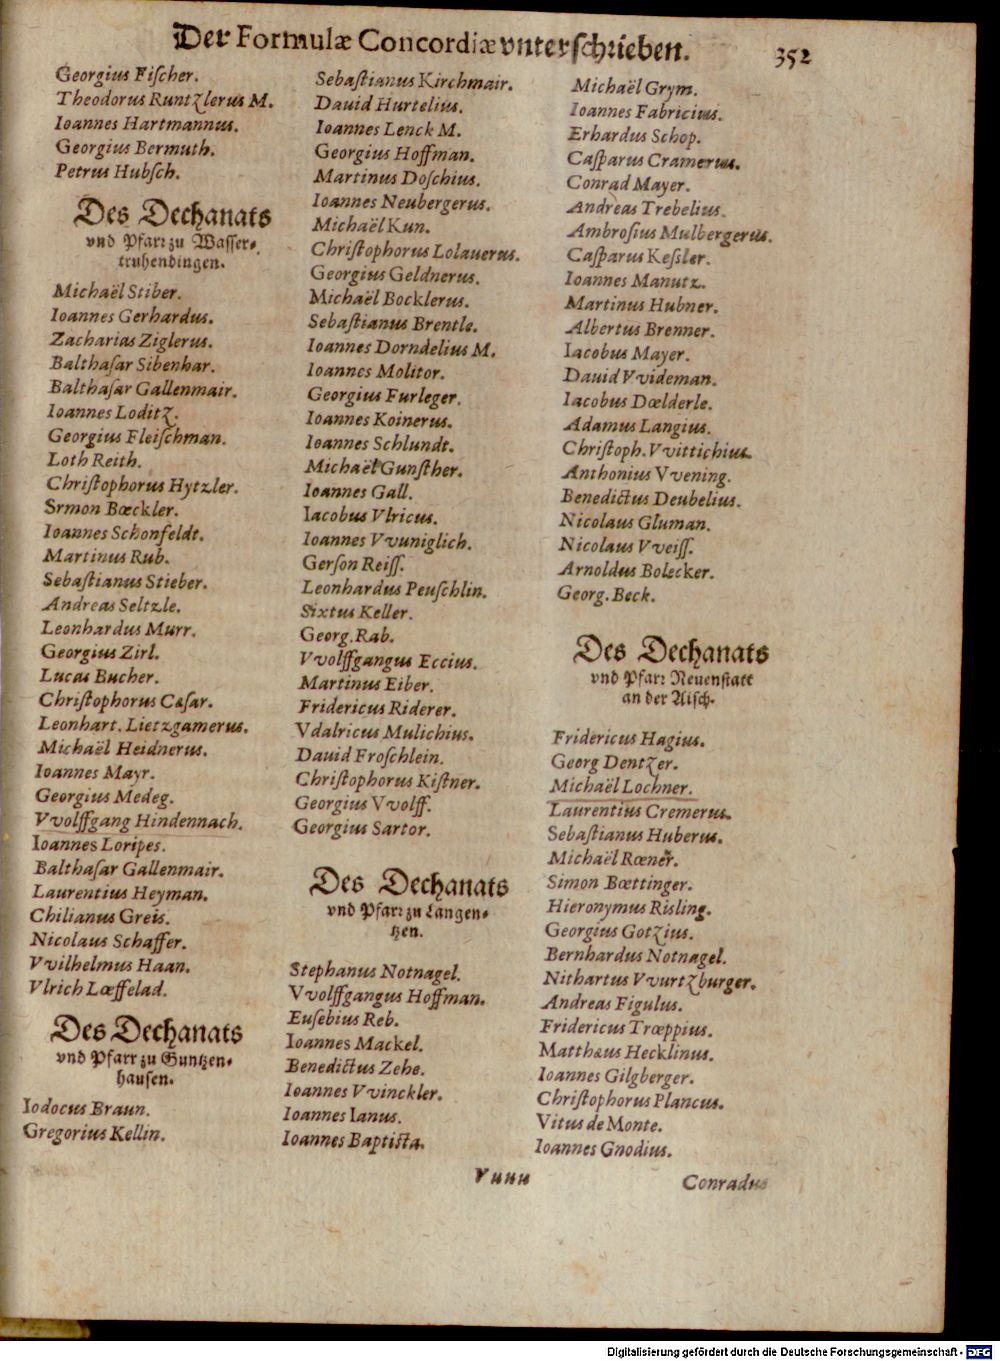 Der Formulæ Concordiæ vnterſchrieben. 352
Georgius Fiſcher.
Theodorus Runtzlerus M.
Ioannes Hartmannus.
Georgius Bermuth.
Petrus Hubſch.
Des Dechanats
vnd Pfarr zu Waſſer-
truhendingen.
Michaël Stiber.
Ioannes Gerhardus.
Zacharias Ziglerus.
Balthaſar Sibenhar.
Balthaſar Gallenmair.
Ioannes Loditz.
Georgius Fleiſchman.
Loth Reith.
Chriſtophorus Hytzler.
Srmon Bœckler.
Ioannes Schonfeldt.
Martinus Rub.
Sebaſtianus Stieber.
Andreas Seltzle.
Leonhardus Murr.
Georgius Zirl.
Lucas Bucher.
Chriſtophorus Cæſar.
Leonhart. Lietzgamerus.
Michaël Heidnerus.
Ioannes Mayr.
Georgius Medeg.
Vvolffgang Hindennach.
Ioannes Loripes.
Balthaſar Gallenmair.
Laurentius Heyman.
Chilianus Greis.
Nicolaus Schaffer.
Vvilhelmus Haan.
Vlrich Lœffelad.
Des Dechanats
vnd Pfarr zu Guntzen-
hauſen.
Iodocus Braun.
Gregorius Kellin.
Sebaſtianus Kirchmair.
Dauid Hurtelius.
Ioannes Lenck M.
Georgius Hoffman.
Martinus Doſchius.
Ioannes Neubergerus.
Michaël Kun.
Chriſtophorus Lolauerus.
Georgius Geldnerus.
Michaël Bocklerus.
Sebaſtianus Brentle.
Ioannes Dorndelius M.
Ioannes Molitor.
Georgius Furleger.
Ioannes Koinerus.
Ioannes Schlundt.
Michaël Gunſther.
Ioannes Gall.
Iacobus Vlricus.
Ioannes Vvuniglich.
Gerſon Reiſſ.
Leonhardus Peuſchlin.
Sixtus Keller.
Georg. Rab.
Vvolffgangus Eccius.
Martinus Eiber.
Fridericus Riderer.
Vdalricus Mulichius.
Dauid Froſchlein.
Chriſtophorus Kiſtner.
Georgius Vvolff.
Georgius Sartor.
Des Dechanats
vnd Pfarr zu Langen-
tzen.
Stephanus Notnagel.
Vvolffgangus Hoffman.
Euſebius Reb.
Ioannes Mackel.
Benedictus Zehe.
Ioannes Vvinckler.
Ioannes Ianus.
Ioannes Baptiſta.
Michaël Grym.
Ioannes Fabricius.
Erhardus Schop.
Caſparus Cramerus.
Conrad Mayer.
Andreas Trebelius.
Ambroſius Mulbergerus.
Caſparus Keſsler.
Ioannes Manutz.
Martinus Hubner.
Albertus Brenner.
Iacobus Mayer.
Dauid Vvideman.
Iacobus Dœlderle.
Adamus Langius.
Chriſtoph. Vvittichius.
Anthonius Vvening.
Benedictus Deubelius.
Nicolaus Gluman.
Nicolaus Vveiſſ.
Arnoldus Bolecker.
Georg. Beck.
Des Dechanats
vnd Pfarr Neuenſtatt
an der Aiſch.
Fridericus Hagius.
Georg Dentzer.
Michaël Lochner.
Laurentius Cremerus.
Sebaſtianus Huberus.
Michaël Rœner.
Simon Bœttinger.
Hieronymus Risling.
Georgius Gotzius.
Bernhardus Notnagel.
Nithartus Vvurtzburger.
Andreas Figulus.
Fridericus Trœppius.
Matthæus Hecklinus.
Ioannes Gilgberger.
Chriſtophorus Plancus.
Vitus de Monte.
Ioannes Gnodius.
Vuuu Conradus
Digitalisierung gefördert durch die Deutsche Forschungsgemeinschaft - DFG